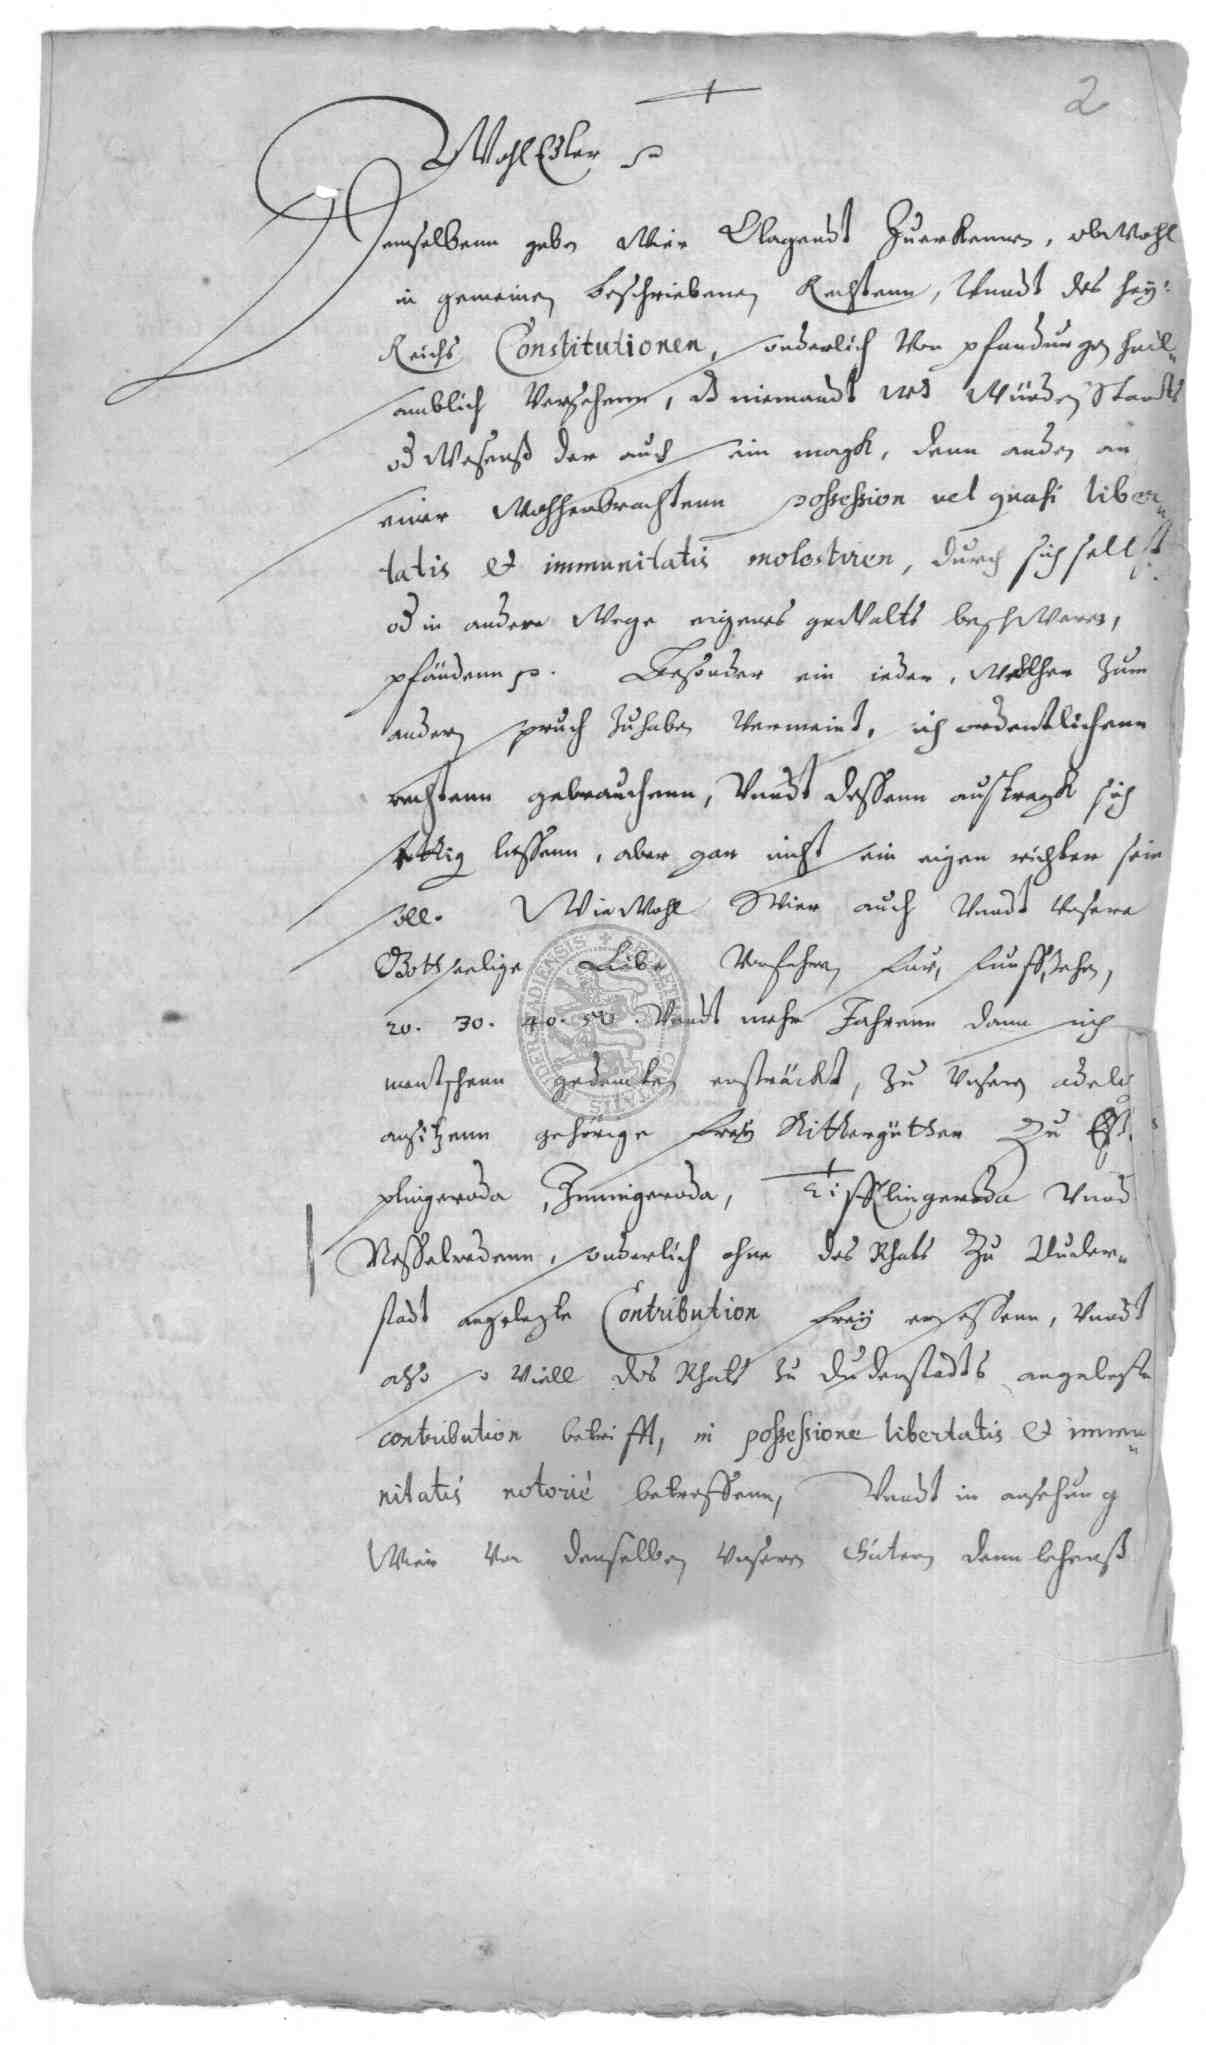 2
WohlEdler p
Demselbenn geben Wier Clagendt Zuerkennen, obWohl
in gemeinen beschriebenen Rechtenn, Vnndt des hey:
Reichs Constitutionen, sonderlich Von pfandungen heil„
samblich Versehenn, d niemandt wes Würden Standts
od Wesenß der auch sein magk, denn anden an
seiner Wohlherbrachtenn possession vel quasi liber„
tatis & immunitatis molestiren, durch sich selbst
od in andere Wege eigenes geWalts beschWeren,
pfändenn p. Besonder ein ieder, Welcher Zum
andern spruch Zuhaben Vermeint, sich ordentlichenn
rechtenn gebrauchenn, Vnndt dessenn austragk sich
lassenn, aber gar nicht sein eigen richter sein
soll. WieWohl Wier auch Vnndt Vnsere
Gottseelige Liebe Vorfahren fur, funffzehen,
20. 30. 40. 50. Vnndt mehr Jahrenn dann sich
mentschenn gedencken ersträckt, Zu Vnsern adeli
ansitzenn gehörige frey Rittergütter Zu Eß„
plingeroda, Immigeroda, Tifftlingeroda Vnnd
Nesselredenn, sonderlich ohne des Rhats Zu Duder„
stadt angelegte Contribution frey ersessenn, Vnndt
also so Viell des Rhats zu Duderstadts angelegte
contribution betrifft, in possessione libertatis & immu„
nitatis notorié betroffenn, Vnndt in ansehung
Wier Von denselben Vnseren Gütern dem lehenß